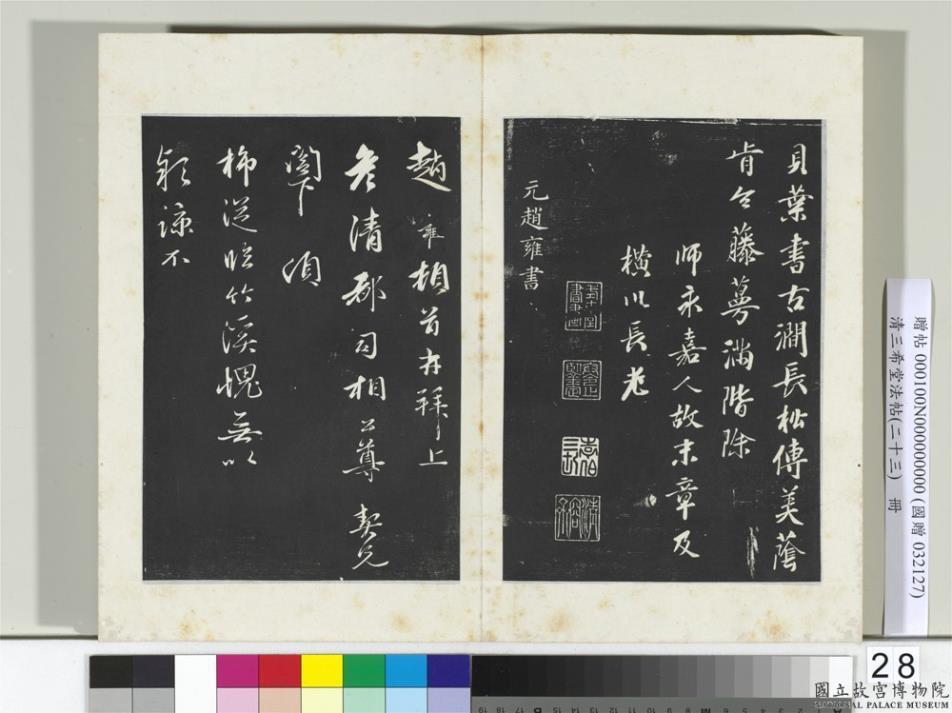 貝葉書古澗長松傳美蔭
肯令藤蔓滿階除
師永嘉人故末章及
橫川長老
元趙雍書
趙雍頓首再拜上
彥清都司相公尊契兄
閣下須
柿送臨竹溪愧無以
報諒不
贈帖 000100N000000000 (國贈 032127)
清三希堂法帖(二十三) 冊
28
國立故宮博物院
NATIONAL PALACE MUSEUM